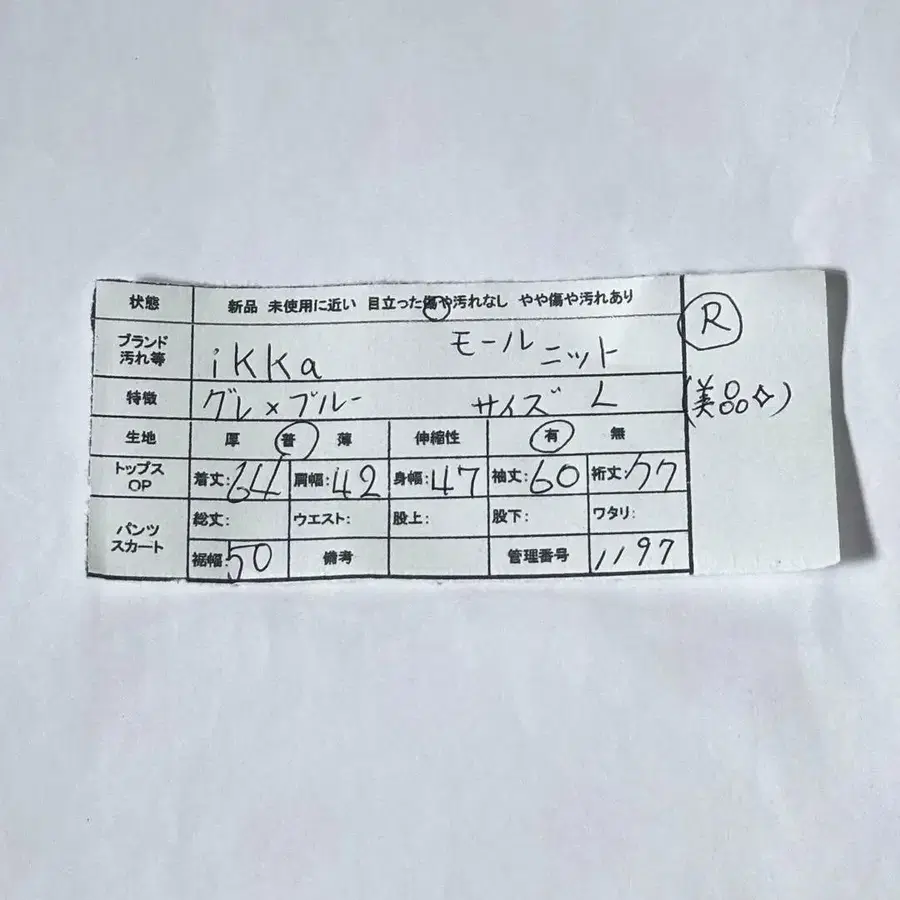 状態 新品 未使用に近い 目立った傷や汚れなし やや傷や汚れあり
R
ブランド 汚れ等 ikka モールニット
特徴 グレ×ブルー サイズ L
(美品✧)
生地 厚 普 薄 伸縮性 有 無
トップス OP 着丈:64 肩幅:42 身幅:47 袖丈:60 裄丈:77
パンツ スカート 総丈: ウエスト: 股上: 股下: ワタリ:
裾幅:50 備考 管理番号 1197